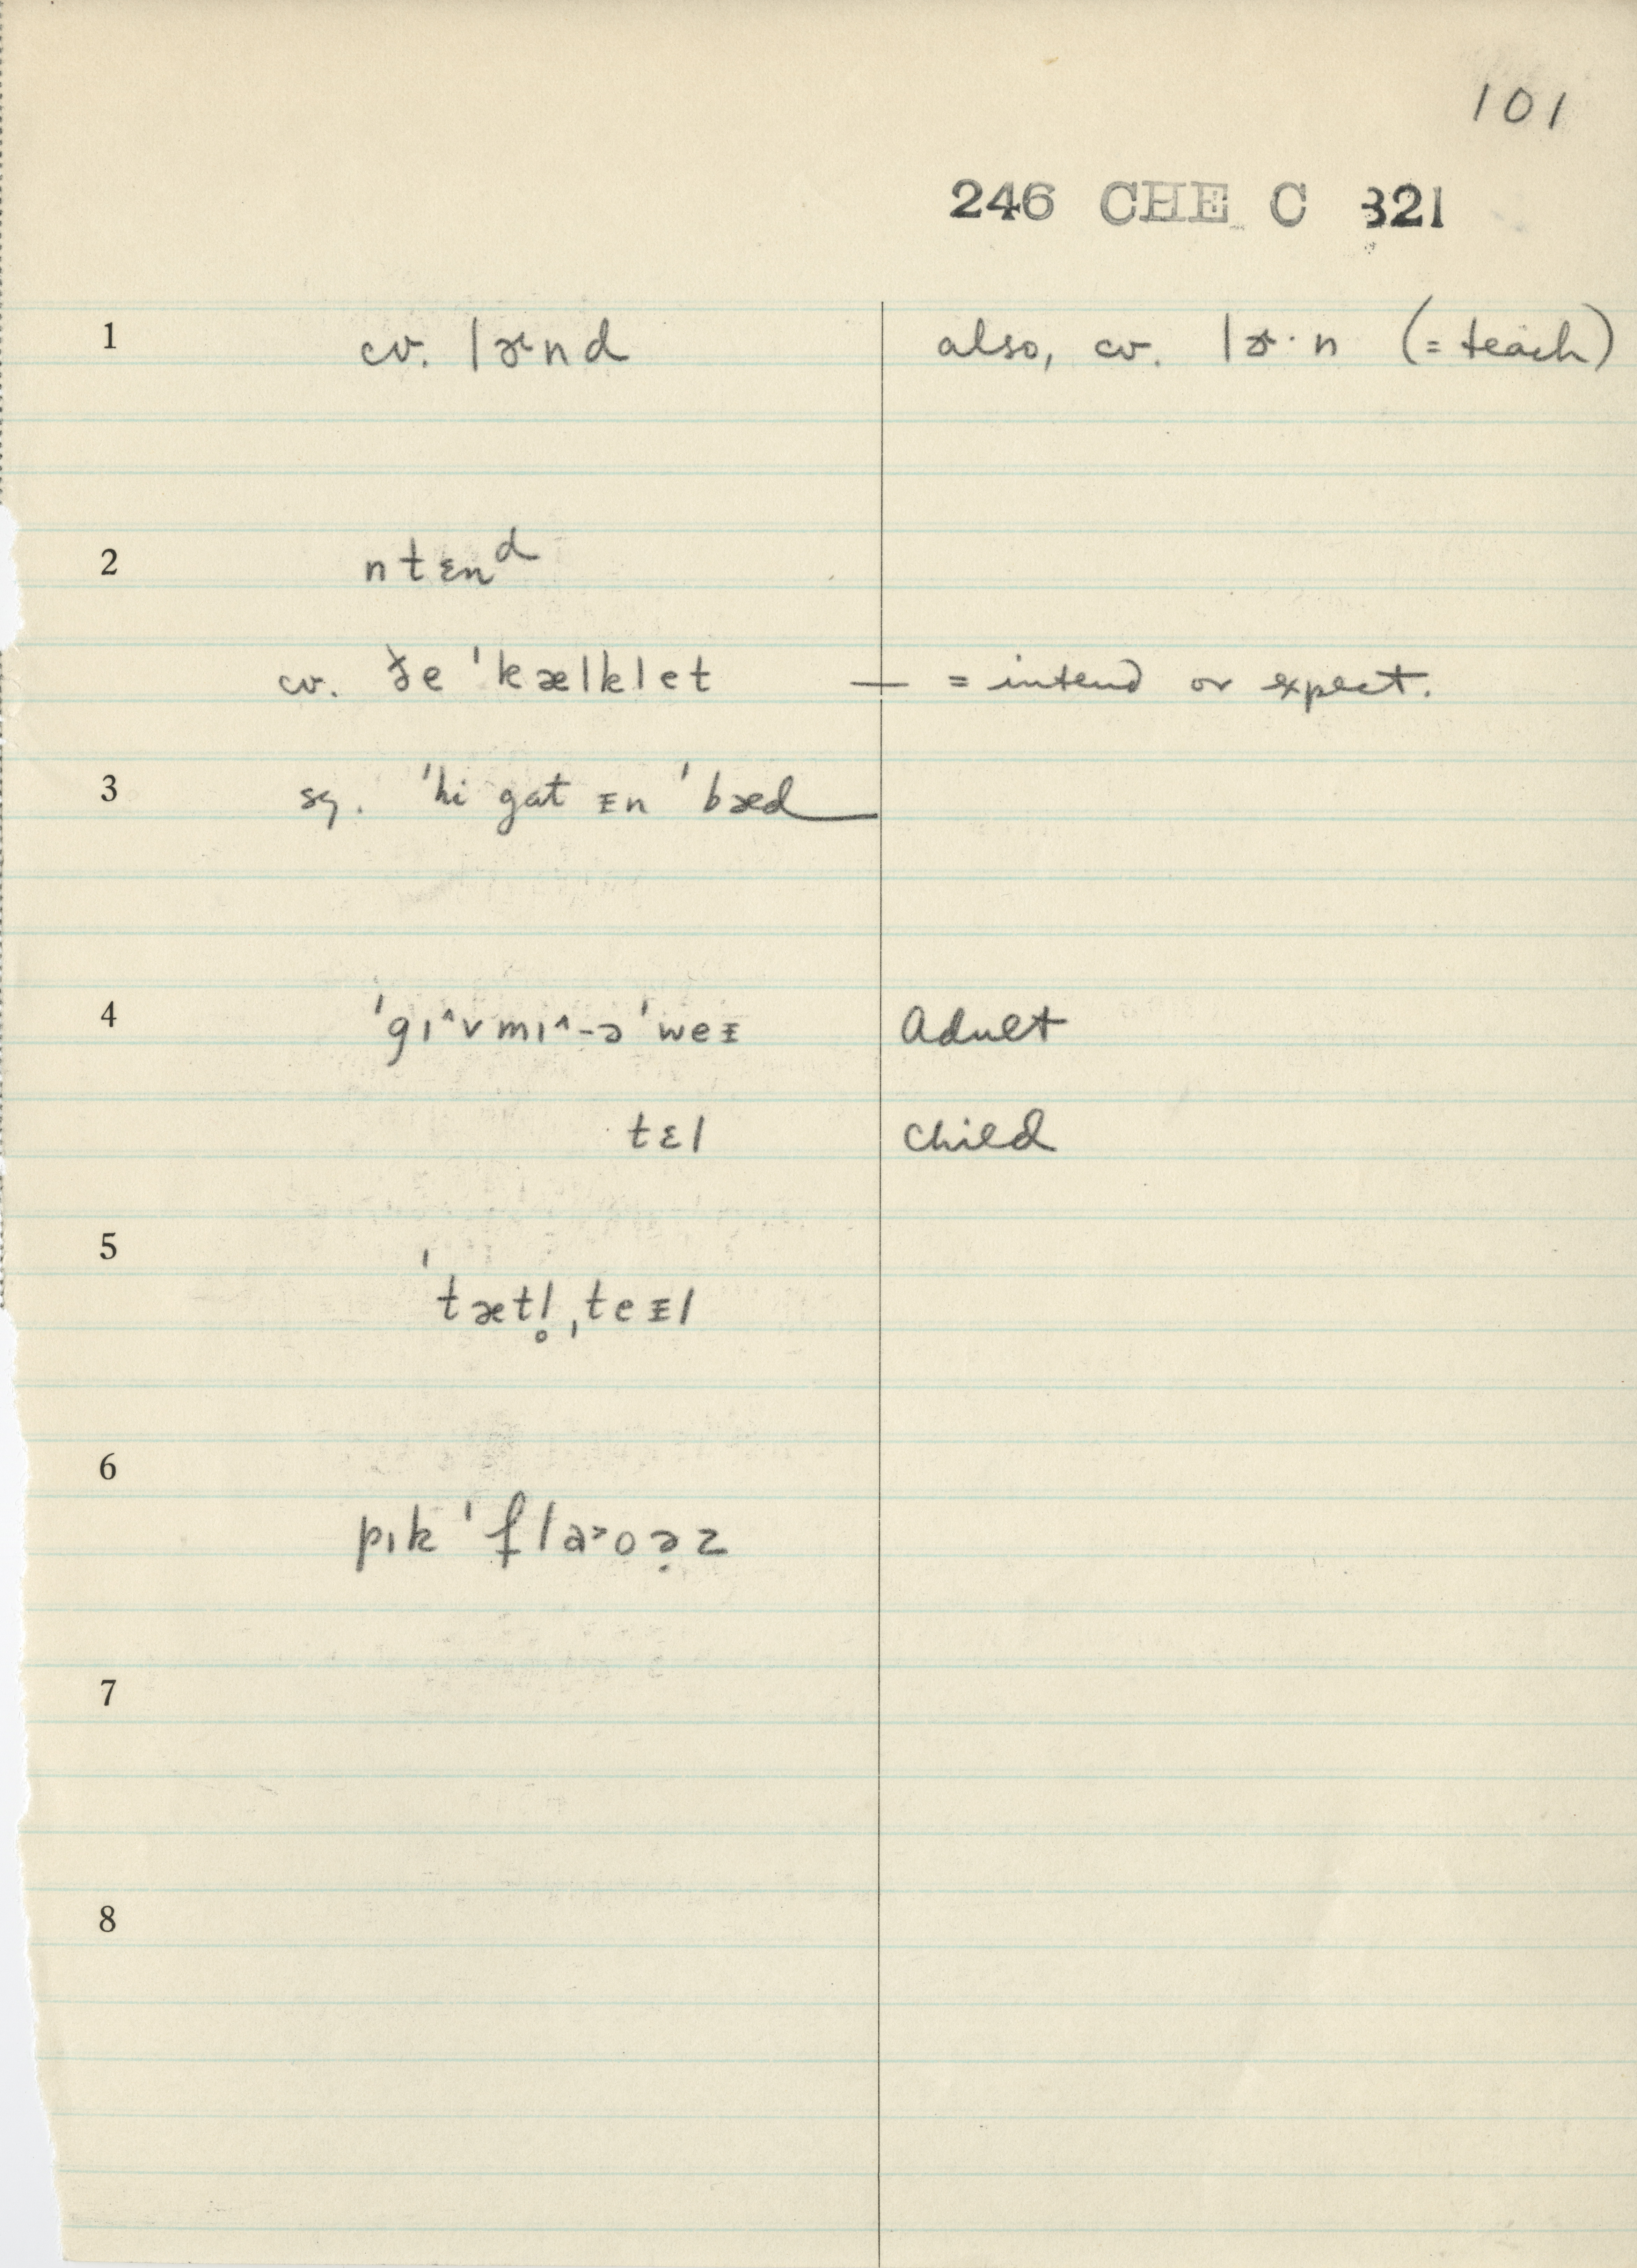 101
246 CHE C 321
1 cv. lɚnd also, cv. lɚ·n (= teach)
2 ntɛnᵈ
cv. ðe ˈkælklet — = intend or expect.
3 sq. ˈhi gat ᵻn ˈbæd
4 ˈgɪ^vmɪ^-ə ˈweᵻ Adult
tɛl Child
5 ˈtætl̥ˌteᵻl
6 pɪk ˈfla>oə̣z
7
8